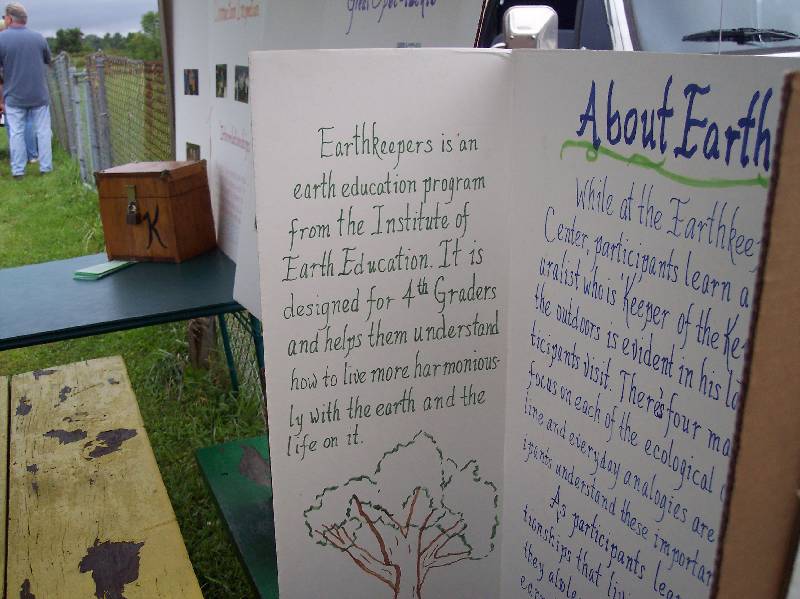 Earthkeepers is an
earth education program
from the Institute of
Earth Education. It is
designed for 4th Graders
and helps them understand
how to live more harmonious-
ly with the earth and the
life on it.
About Earth
While at the Earthkee
Center, participants learn a
uralist who is "Keeper of the Ke
the outdoors is evident in his l
ticipants visit. There's four ma
focus on each of the ecological
line and everyday analogies are
ipants understand these importan
As participants lea
tionships that liv
they also
K